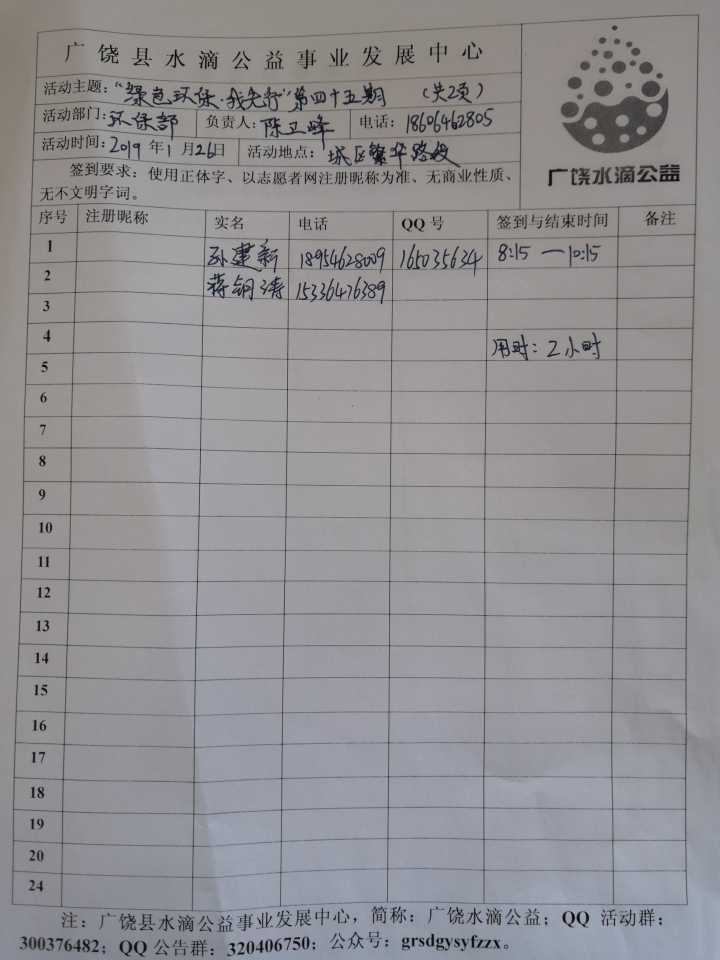 广饶县水滴公益事业发展中心
活动主题："绿色环保·我先行"第四十五期 (共2页)
活动部门：环保部 负责人：陈卫峰 电话：18606462805
活动时间：2019年1月26日 活动地点：城区繁华路段
签到要求：使用正体字、以志愿者网注册昵称为准、无商业性质、
无不文明字词。
广饶水滴公益
序号 注册昵称 实名 电话 QQ号 签到与结束时间 备注
1 孙建新 18954628009 165035634 8:15—10:15
2 蒋钢涛 15336476389
3
4 用时：2小时
5
6
7
8
9
10
11
12
13
14
15
16
17
18
19
20
24
注：广饶县水滴公益事业发展中心，简称：广饶水滴公益；QQ 活动群：
300376482；QQ 公告群：320406750；公众号：grsdgysyfzzx。